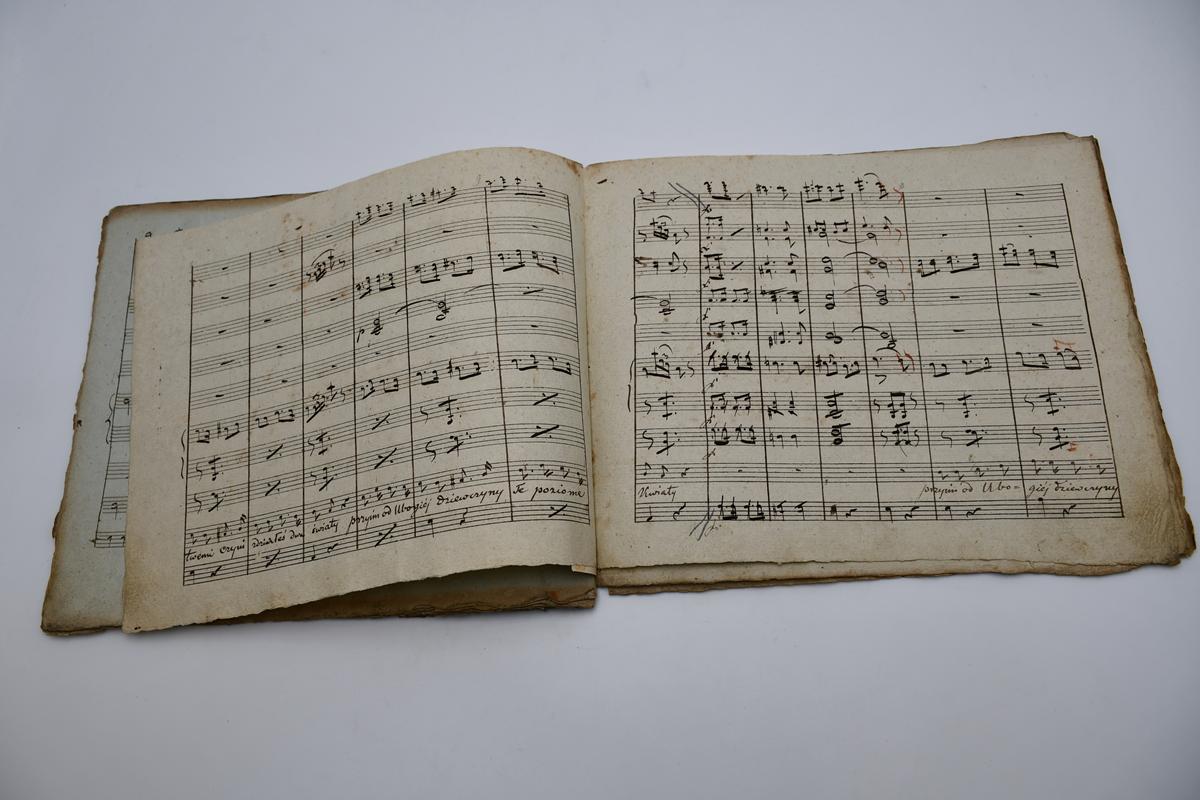 twemi dziateś dwa kwiaty przyim od Ubogiéj dziewczyny Te poziome
Kwiaty przyim od Ubo= giéj dziewczyny